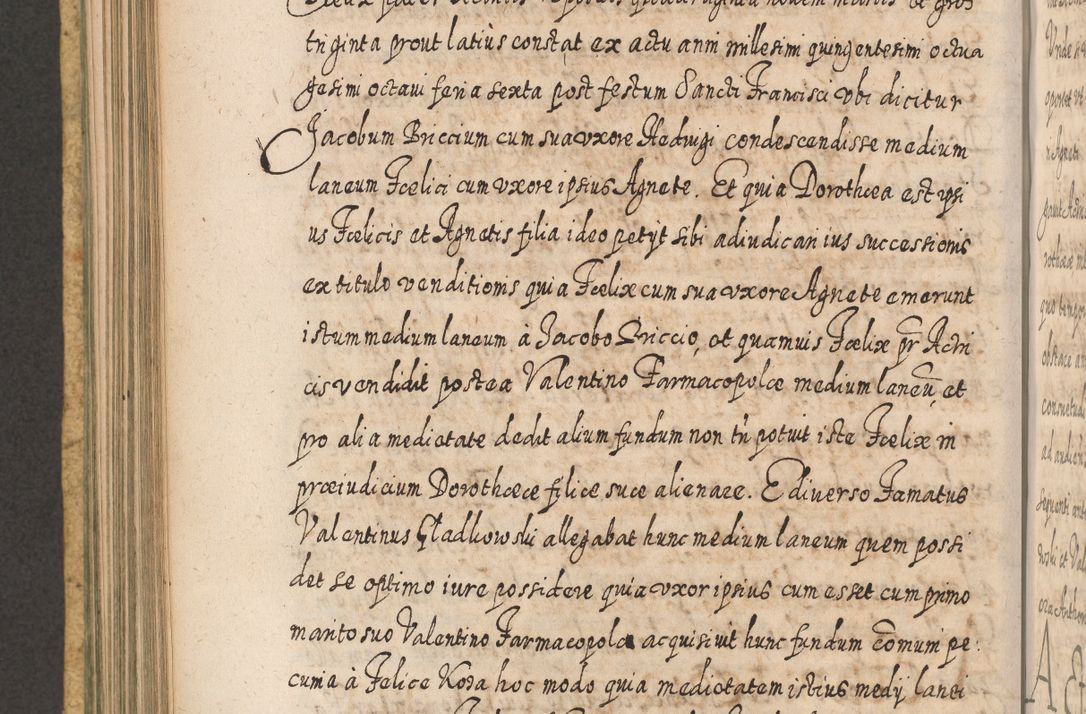 triginta prout latius constat ex actu anni millesimi quingentesimi octua
gesimi octaui feria sexta post festum Sancti Francisci vbi dicitur
Jacobum Briccium cum sua vxore Hedwigi condescendisse medium
laneum Fœlici cum vxore ipsius Agnete. Et quia Dorothea est ipsi
us Fœlicis et Agnetis filia ideo petijt sibi adiudicari ius successionis
ex titulo venditionis quia Fœlix cum sua vxore Agnete emerunt
istum medium laneum à Jacobo Briccio, et quamuis Fœlix pr Actri
cis vendidit postea Valentino Farmacopolæ medium laneū, et
pro alia medietate dedit alium fundum non tn̄ potuit iste Fœlix in
præiudicium Dorotheæ filiæ suæ alienare. E diuerso Famatus
Valentinus Gladkowski allegabat hunc medium laneum quem possi
det se optimo iure possidere quia vxor ipsius cum esset cum primo
marito suo Valentino Farmacopola acquisiuit hunc fundum cōmuni pe
cunia à Felice Koza hoc modo quia medietatem istius medij lanei